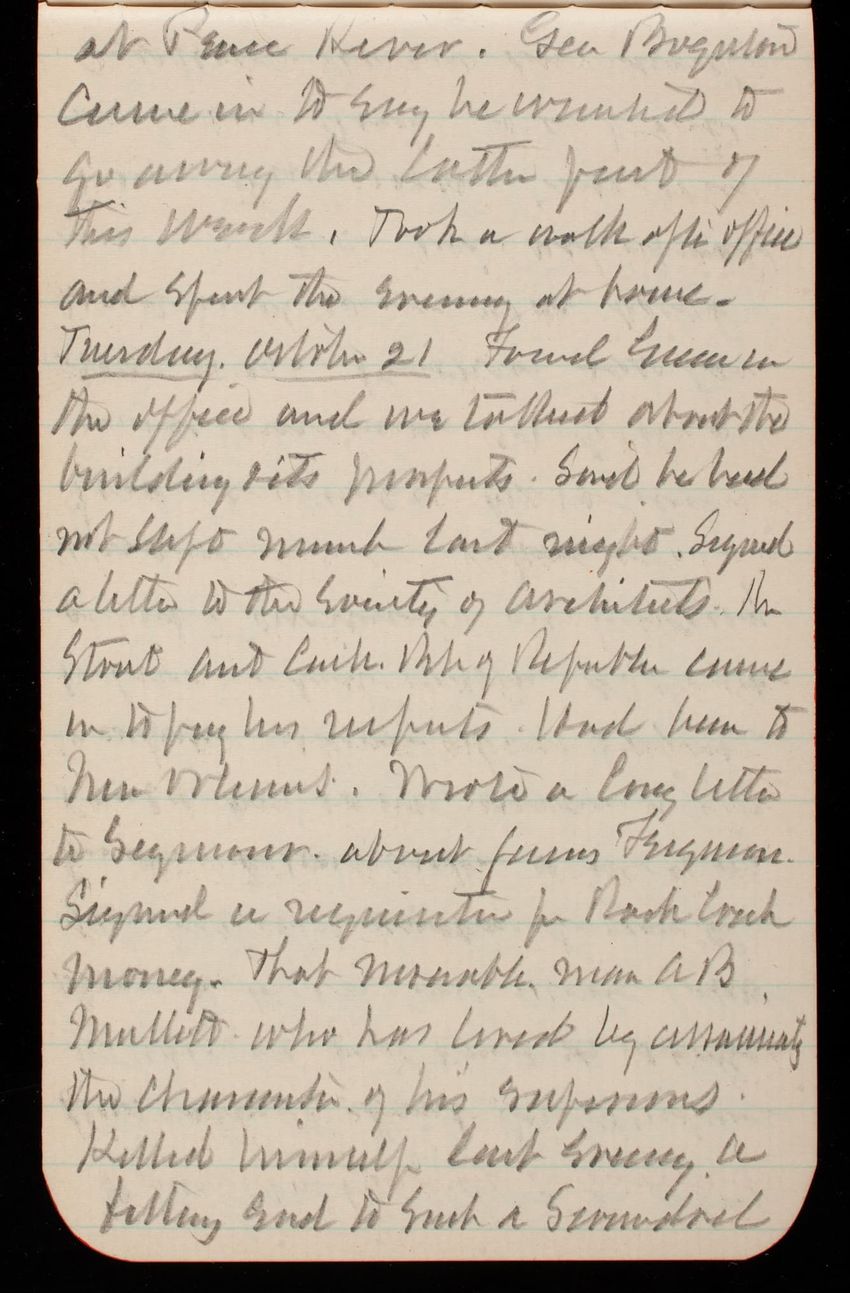 at Peace River. Geo Boynton
came in to say he wanted to
go away the latter part of
this week. Took a walk after office
and spent the evening at home.
Tuesday. October 21 Found Green in
the office and we talked about the
building & its prospects. Said he had
not slept much last night. Signed
a letter to the Society of Architects.
Stout and Cash. Bk of Republic came
in to pay his respects. Had been to
New Orleans. Wrote a long letter
to Seymour. about Ferguson.
Signed a requisition for Rock Creek
money. That miserable man A B
Mullett who has lived by assassinating
the character of his superiors.
Killed himself last evening. A
fitting end to such a Scoundrel